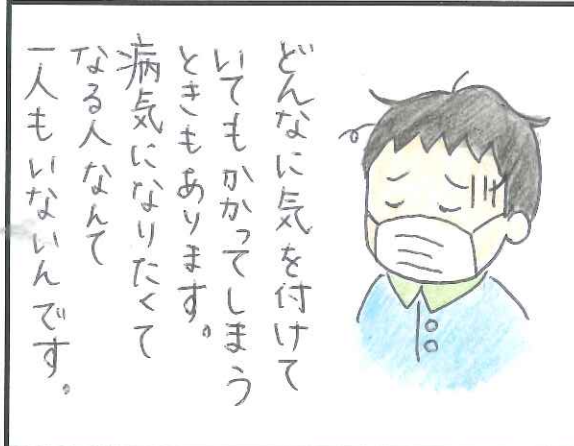 どんなに気を付けて
いてもかかってしまう
ときもあります。
病気になりたくて
なる人なんて
一人もいないんです。